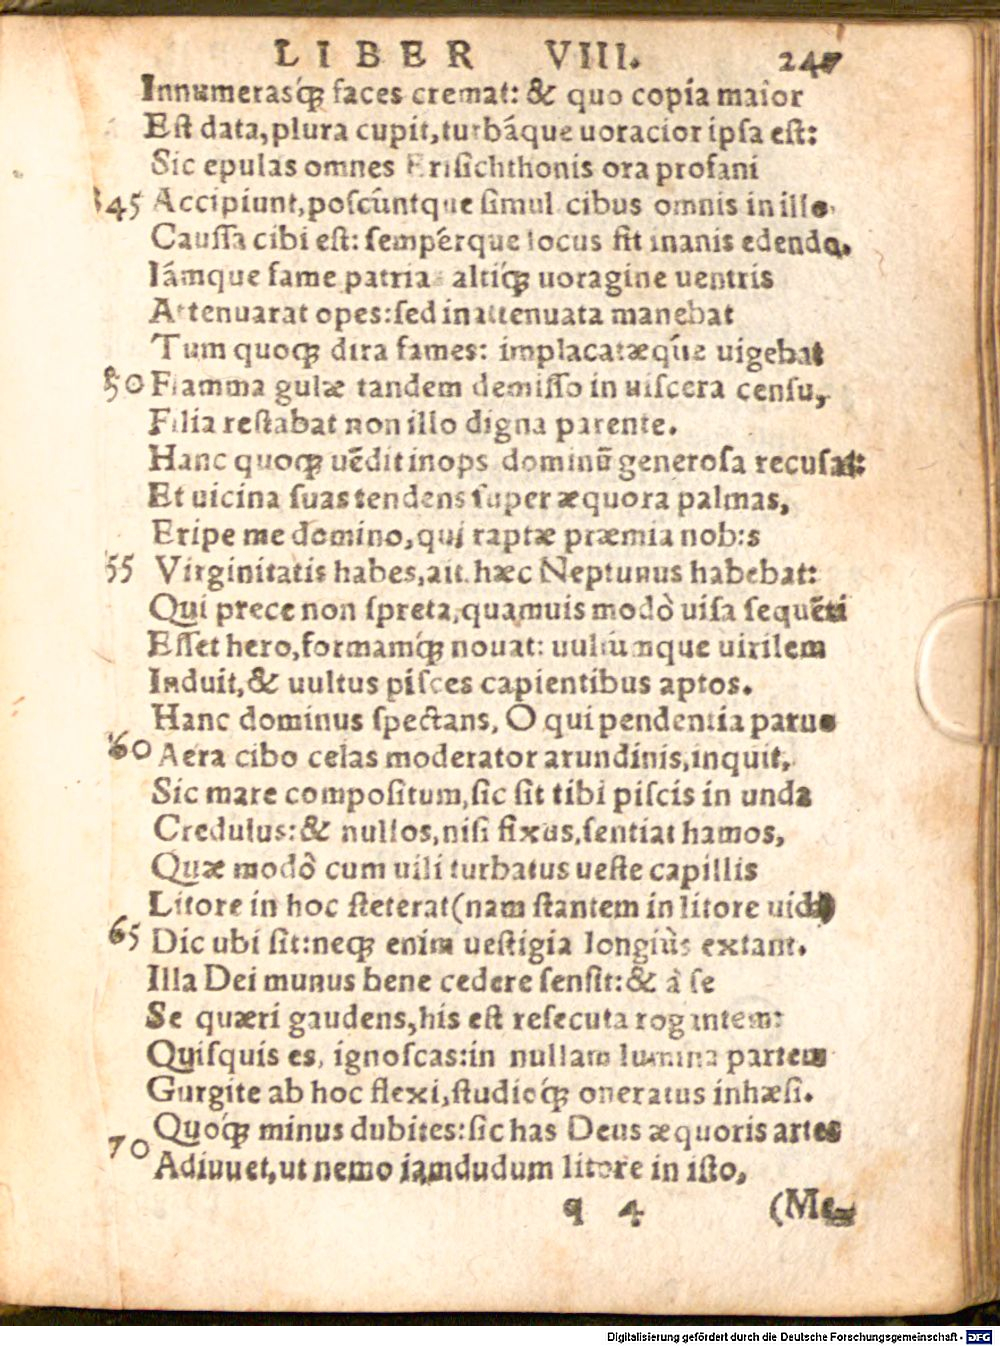 LIBER VIII. 247
Innumerasq́; faces cremat: & quo copia maior
Est data, plura cupit, turbáque uoracior ipsa est:
Sic epulas omnes Erisichthonis ora profani
845 Accipiunt, poscúntque simul. cibus omnis in illo
Caussa cibi est: sempérque locus fit inanis edendo.
Iámque fame patrias altiq́; uoragine uentris
Attenuarat opes: sed inattenuata manebat
Tum quoq; dira fames: implacatæq́ue uigebat
50 Flamma gulæ tandem demisso in uiscera censu,
Filia restabat non illo digna parente.
Hanc quoq; uẽdit inops dominũ generosa recusat:
Et uicina suas tendens super æquora palmas,
Eripe me domino, qui raptæ præmia nobis
55 Virginitatis habes, ait. hæc Neptunus habebat:
Qui prece non spreta, quamuis modò uisa sequẽti
Esset hero, formamq́; nouat: uultumque uirilem
Induit, & uultus pisces capientibus aptos.
Hanc dominus spectans, O qui pendentia paruo
60 Aera cibo celas moderator arundinis, inquit,
Sic mare compositum, sic sit tibi piscis in unda
Credulus: & nullos, nisi fixus, sentiat hamos,
Quæ modò cum uili turbatus ueste capillis
Litore in hoc steterat (nam stantem in litore uidi)
65 Dic ubi sit: neq; enim uestigia longiùs extant.
Illa Dei munus bene cedere sensit: & à se
Se quæri gaudens, his est resecuta rogantem:
Quisquis es, ignoscas: in nullam lumina partem
Gurgite ab hoc flexi, studioq́; operatus inhæsi.
Quóq; minus dubites: sic has Deus æquoris artes
70 Adiuuet, ut nemo iamdudum litore in isto,
q 4 (Me-
Digitalisierung gefördert durch die Deutsche Forschungsgemeinschaft - DFG